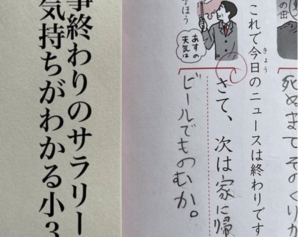 死ぬまでそのくりか
これで今日のニュースは終わりです
きょう
お
さて、次は家に帰
ビールでものむか。
あすの
天気は
事終わりのサラリー
気持ちがわかる小3